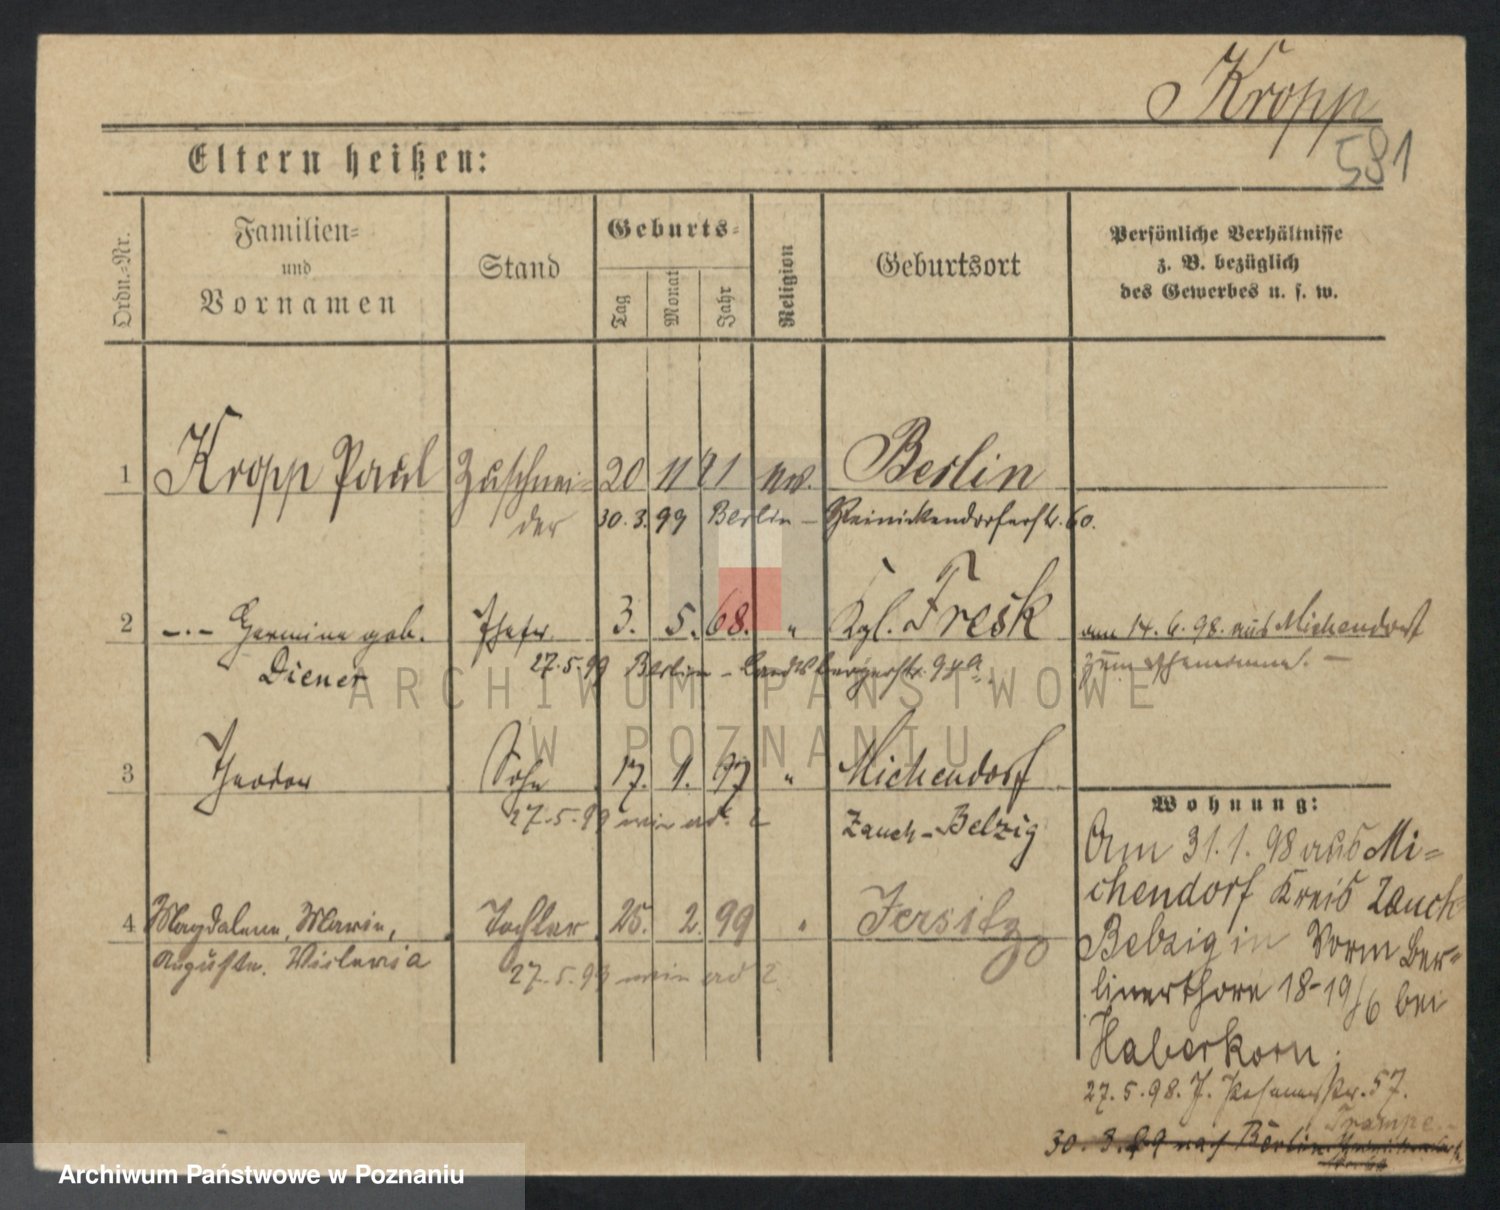 Kropp
591
Eltern heißen:
Ordn.-Nr.
Familien-
und
Vornamen
Stand
Geburts-
Tag
Monat
Jahr
Religion
Geburtsort
Persönliche Verhältnisse
z. B. bezüglich
des Gewerbes u. s. w.
1 Kropp Paul Zuschnei- 20 11 71 ev. Berlin
der 30.3.99 Berlin - Reinickendorferstr. 60.
2 -.- Hermine geb. Ehefr. 3. 5. 68. " Kgl. Fresk am 14.6.98. aus Michendorf
Diener 27.5.99 Berlin - Landsbergerstr.
3 Theodor Sohn 17. 1. 97 " Michendorf
27.5.99 wie ad. 2 Zauch-Belzig
Wohnung:
Am 31.1.98 aus Mi-
chendorf Kreis Zauch
Belzig in Vorm Ber-
linerthore 18-19/6 bei
Haberkorn.
4 Magdalene, Marie, Tochter 25. 2. 99 " Jersitz
Auguste. 27.5.99 wie ad 2
27.5.98. J. 57.
Trampe
30.3.99 nach Berlin
ARCHIWUM PAŃSTWOWE
W POZNANIU
Archiwum Państwowe w Poznaniu